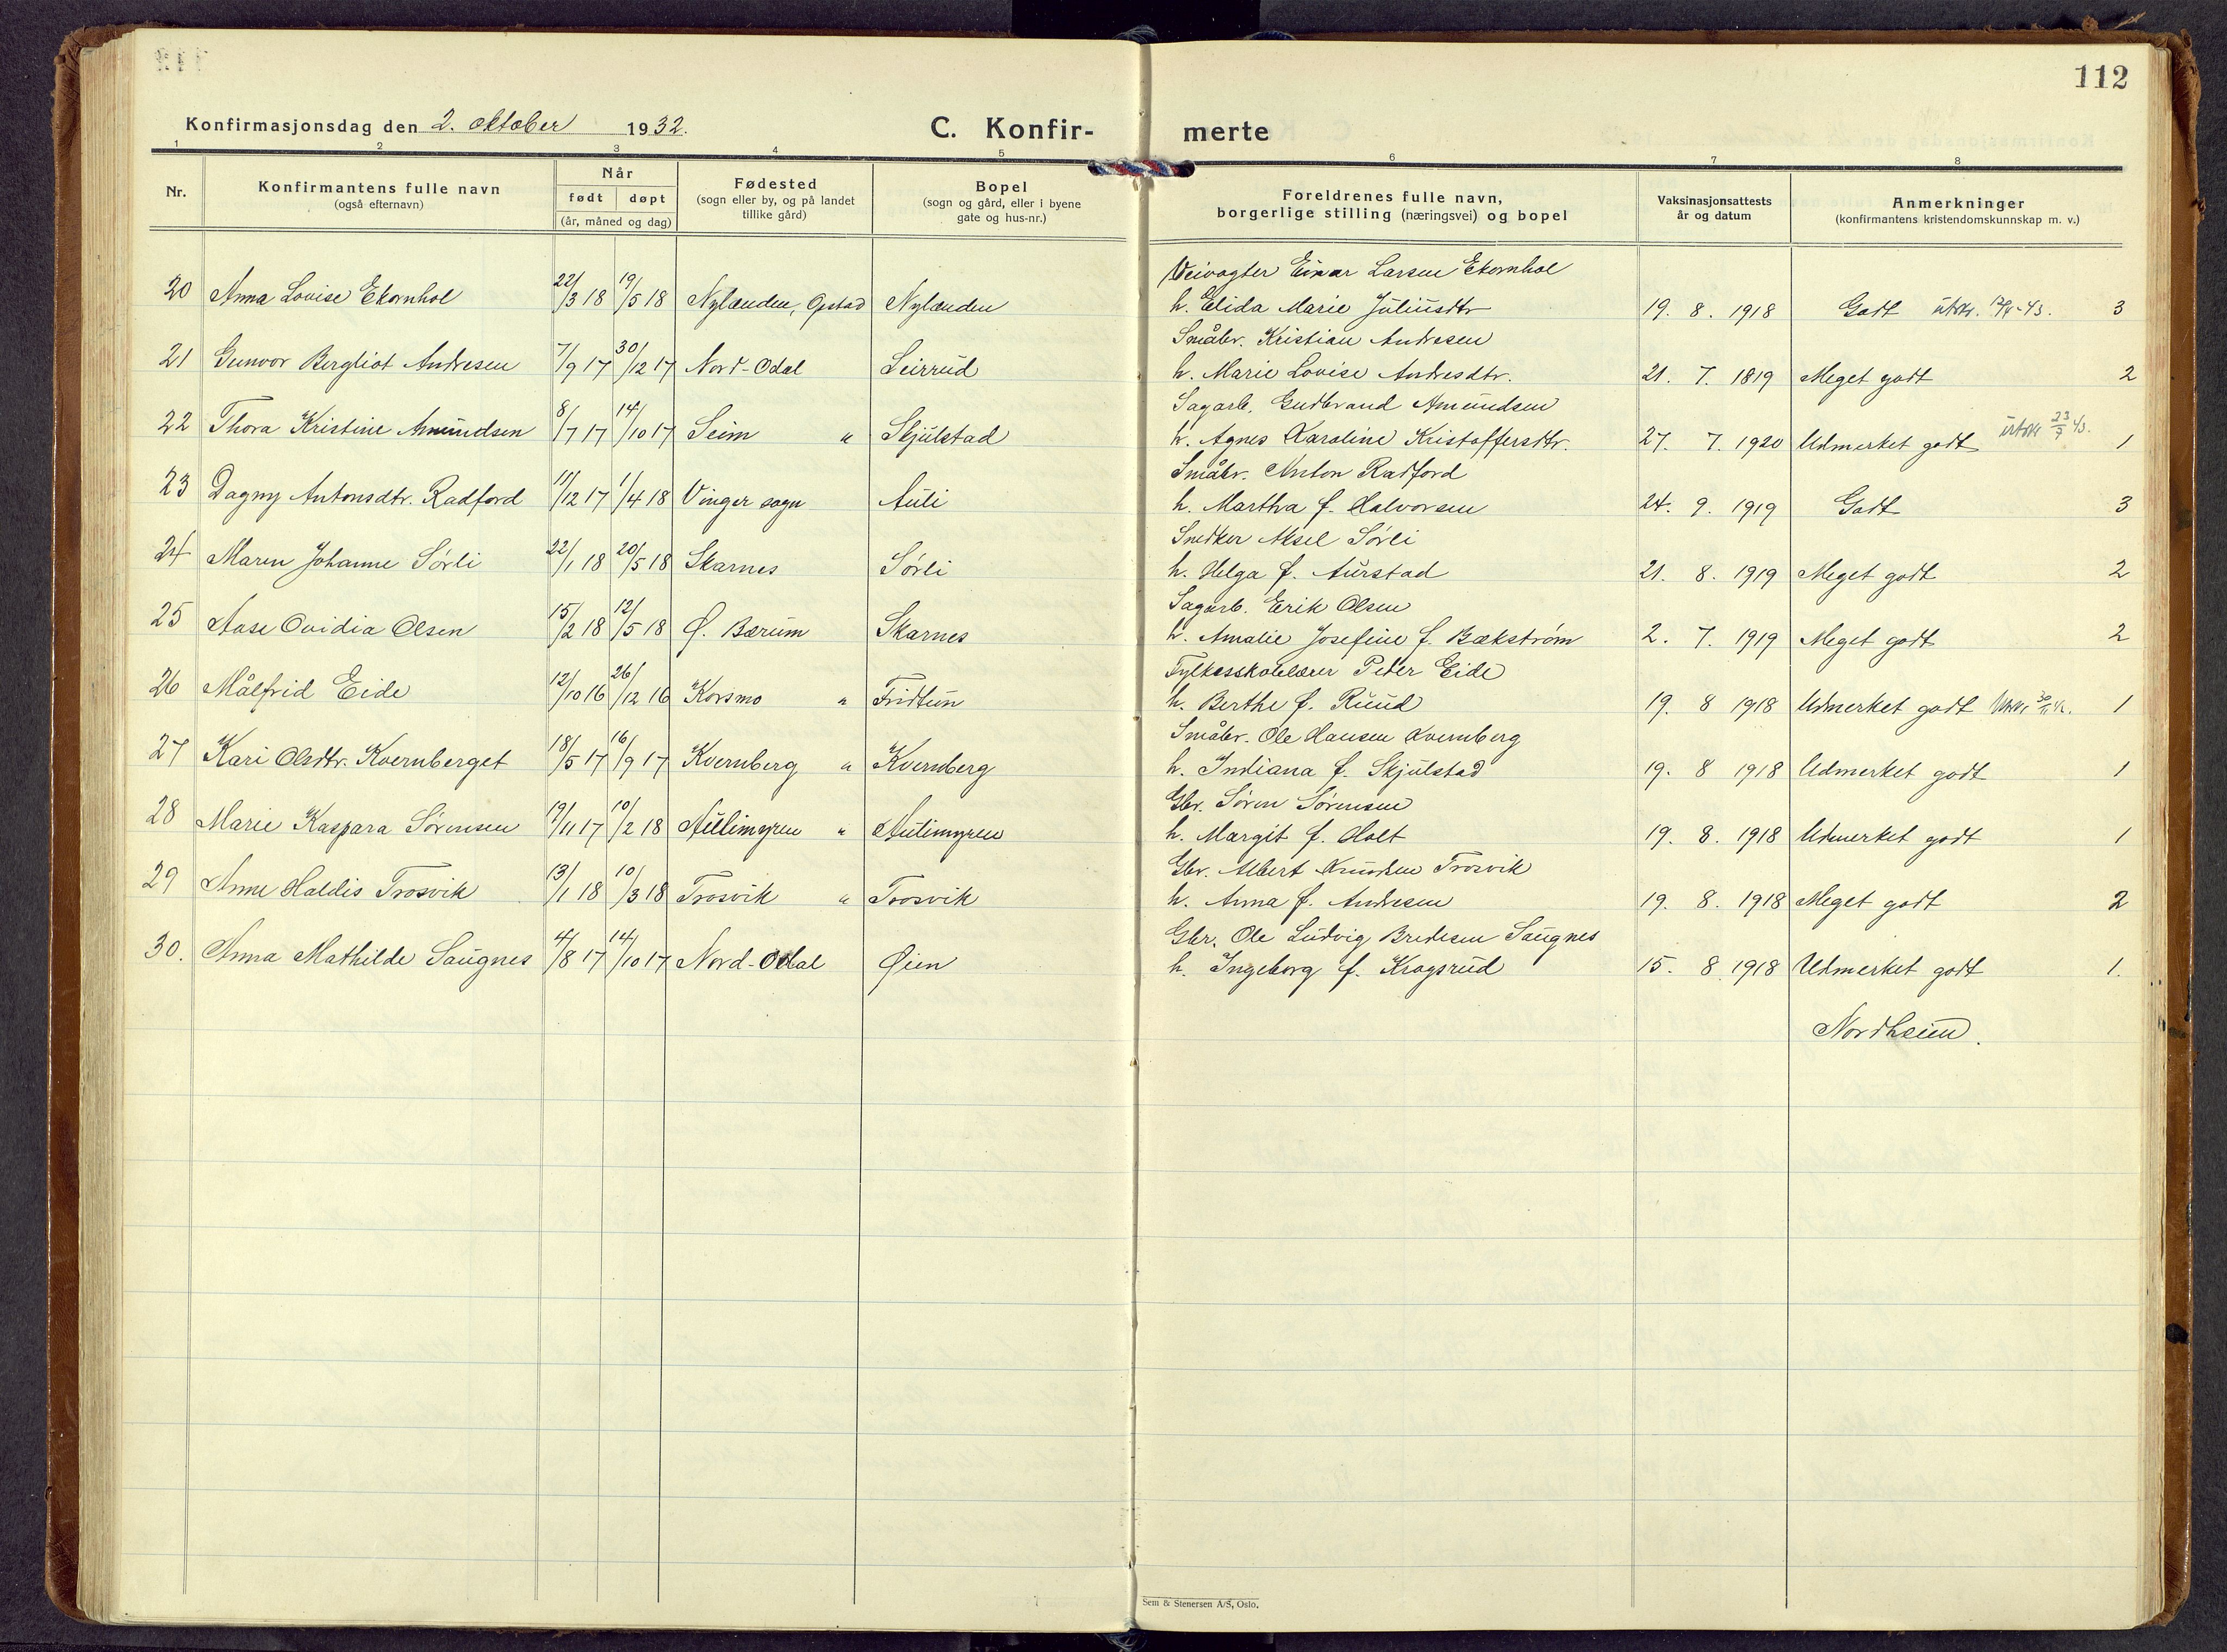 112
Konfirmasjonsdag den 2. oktober 1932.
C. Konfir-
merte
1 2 3 4 5 6 7 8
Nr.
Konfirmantens fulle navn
(også efternavn)
Når
født døpt
(år, måned og dag)
Fødested
(sogn eller by, og på landet
tillike gård)
Bopel
(sogn og gård, eller i byene
gate og hus-nr.)
Foreldrenes fulle navn,
borgerlige stilling (næringsvei) og bopel
Vaksinasjonsattests
år og datum
Anmerkninger
(konfirmantens kristendomskunnskap m. v.)
Veivogter Einar Larsen Ekornhol
20 Anna Lovise Ekornhol 22/3 18 19/5 18 Nylænden, Opstad Nylænden h. Elida Marie Juliusdtr 19. 8. 1918 Godt utskr. 3
Småbr. Kristian Andresen
21 Gunvor Bergliot Andresen 7/9 17 30/12 17 Nord-Odal Leirrud h. Marie Lovise Andresdtr. 21. 7. 1819 Meget godt 2
Sagarb. Gudbrand Amundsen
22 Thora Kristine Amundsen 8/7 17 14/10 17 Seim " Skjulstad h. Agnes Karoline Kristoffersdtr. 27. 7. 1920 Udmerket godt utskr 23/7 43. 1
Småbr. Anton Radford
23 Dagny Antonsdtr. Radford 11/12 17 1/4 18 Vinger sogn Auli h. Martha f. Halvorsen 24. 9. 1919 Godt 3
Snedker Aksel Sørli
24 Maren Johanne Sørli 22/1 18 20/5 18 Skarnes Sørli h. Helga f. Aurstad 21. 8. 1919 Meget godt 2
Sagarb. Erik Olsen
25 Aase Ovidia Olsen 15/2 18 12/5 18 Ø. Bærum Skarnes h. Amalie Josefine f. Bækstrøm 2. 7. 1919 Meget godt 2
Fylkesskolelærer Peder Eide
26 Målfrid Eide 12/10 16 26/12 16 Korsmo " Fridtun h. Berthe f. Ruud 19. 8 1918 Udmerket godt 1
Småbr. Ole Hansen Kvernberg
27 Kari Olsdtr. Kvernberget 18/5 17 16/9 17 Kvernberg " Kvernberg h. Indiana f. Skjulstad 19. 8 1918 Udmerket godt 1
Gbr. Søren Sørensen
28 Marie Kaspara Sørensen 19/11 17 10/2 18 Aulimyren " Aulimyren h. Margit f. Holt 19. 8. 1918 Udmerket godt 1
Gbr. Albert Knudsen Trosvik
29 Anne Haldis Trosvik 13/1 18 10/3 18 Trosvik " Trosvik h. Anna f. Andresen 19. 8. 1918 Meget godt 2
Gbr. Ole Ludvig Bredesen Saugnes
30. Anna Mathilde Saugnes 4/8 17 14/10 17 Nord-Odal Øien h. Ingeborg f. Krogsrud 15. 8. 1918 Udmerket godt 1.
Nordheim.
Sem & Stenersen A/S, Oslo.